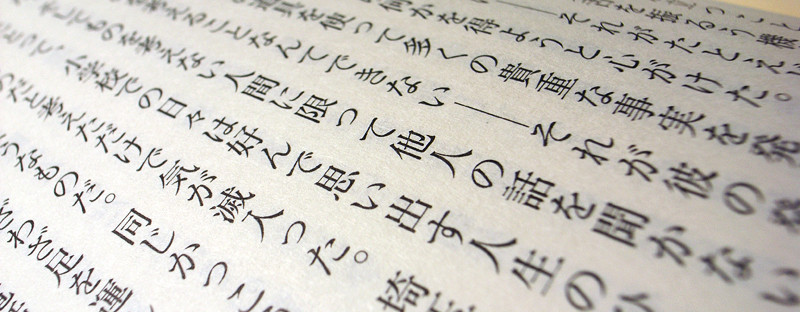 を振るう機
――それがたとえい
何かを得ようと心がけた。
道具を使って多くの貴重な事実を発
考えることなんてできない――それが彼の
ものを考えない人間に限って他人の話を聞かない
とって、小学校での日々は好んで思い出す人生のひ
だと考えただけで気が滅入った。埼
うなものだ。同じかっこ
ざわざ足を運